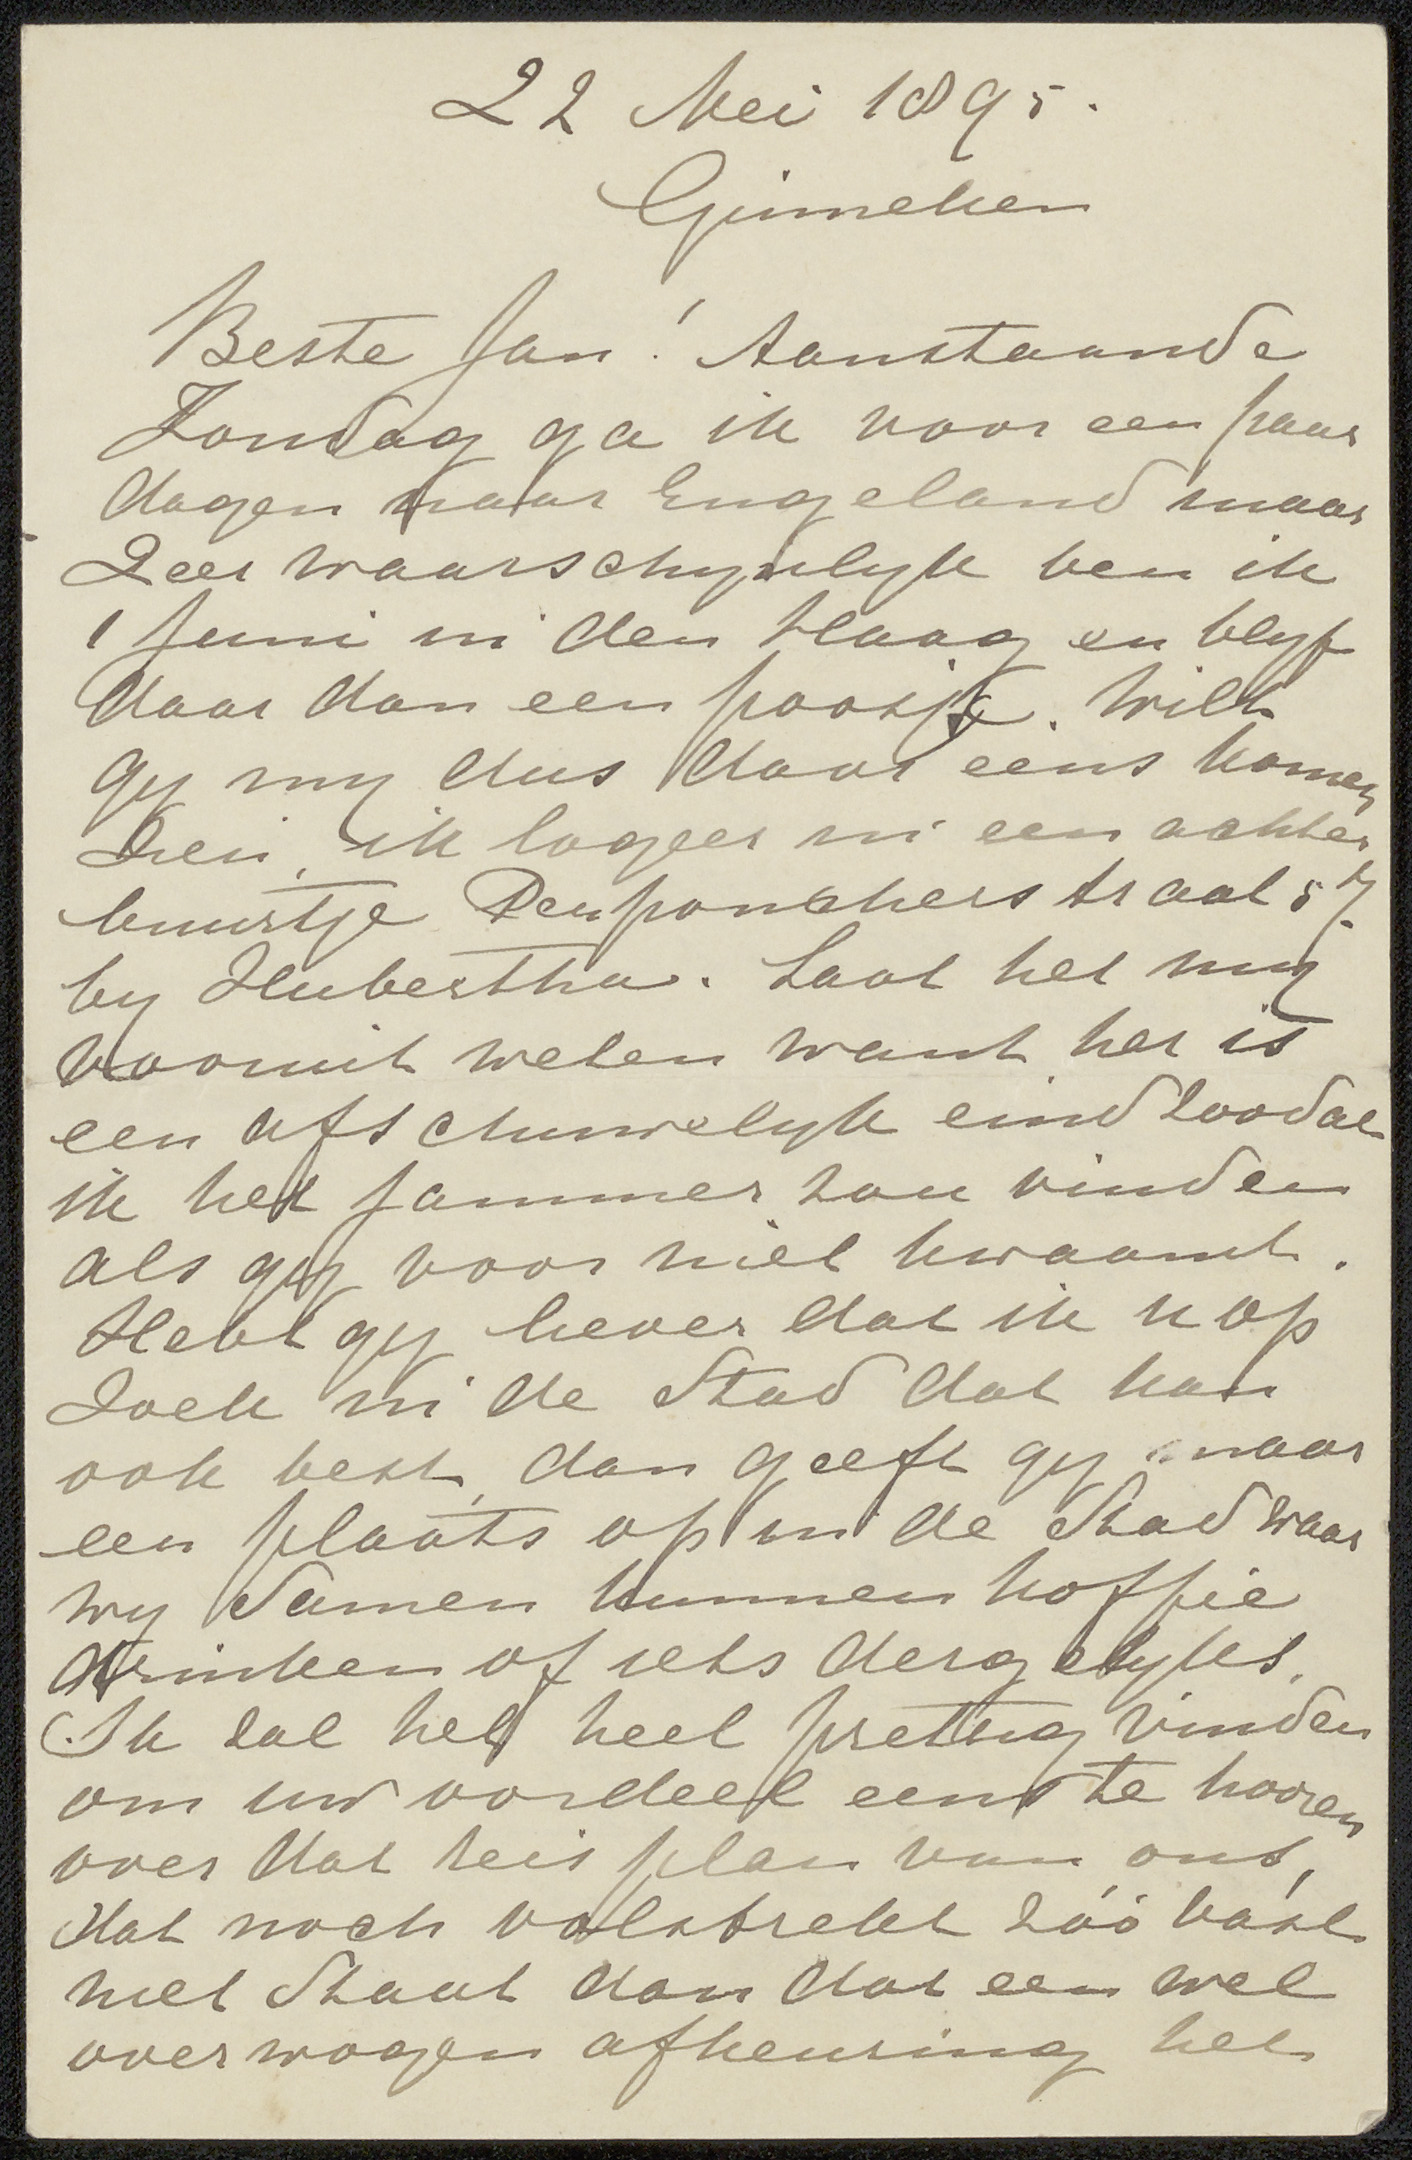 22 Mei 1895.
Ginneken
Beste Jan! Aanstaande
Zondag ga ik voor een paar
dagen naar Engeland maar
Zeer waarschynlyk ben ik
1 Juni in den Haag en blyf
daar dan een poosje. Wilt
gy my dus daar eens komen
Zien, ik logeer in een achter
buurtje Desponchers traat 57
by Hubertha. Laat het my
vooruit weten want het is
een afschuwelyk eind zoodat
ik het jammer zou vinden
als gy voor niet kwaamt.
Hebt gy liever dat ik u op
Zoek in de Stad dat kan
ook best, dan geeft gy maar
een plaats op in de Stad waar
wy Samen kunnen koffie
drinken of iets dergelyks.
Ik zal het heel prettig vinden
om uw oordeel eens te hooren
over dat reisplan van ons,
dat noch volstrekt zóó vast
niet Staat dan dat een wel
overwogen afkeuring het